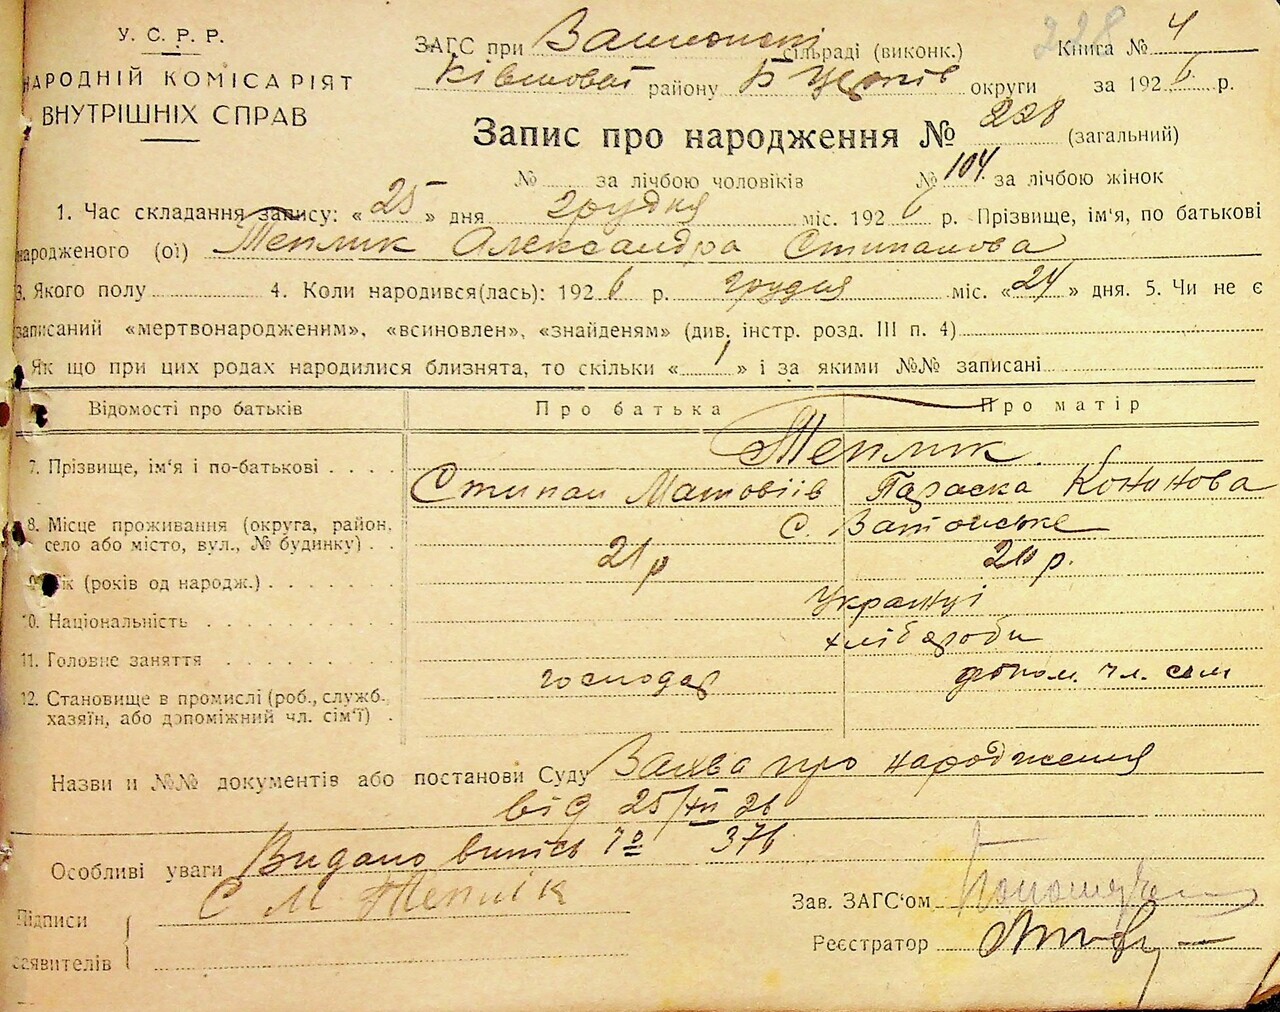 У. С. Р. Р.
НАРОДНІЙ КОМІСАРІЯТ
ВНУТРІШНІХ СПРАВ
228
ЗАГС при сільраді (виконк.) Книга № 4
району Б Церків округи за 1926 р.
Запис про народження № 228 (загальний)
№ за лічбою чоловіків № 104 за лічбою жінок
1. Час складання запису: « 25 » дня грудня міс. 1926 р. Прізвище, ім'я, по батькові
народженого (ої) Теплик Александра Стипанова
3. Якого полу 4. Коли народився(лась): 1926 р. грудня міс. «24» дня. 5. Чи не є
записаний «мертвонародженим», «всиновлен», «знайденям» (див. інстр. розд. III п. 4)
Як що при цих родах народилися близнята, то скільки « 1 » і за якими №№ записані
Відомості про батьків Про батька Про матір
7. Прізвище, ім'я і по-батькові Теплик
Стипан Матовіів Параска Кононова
8. Місце проживання (округа, район, село або місто, вул., № будинку) с.
9. Вік (років од народж.) 21 р р.
10. Національність Українці
11. Головне заняття хлібороби
12. Становище в промислі (роб., служб., хазяїн, або допоміжний чл. сім'ї) господар допом. чл. сем
Назви и №№ документів або постанови Суду про народження
від 25/XII 26
Особливі уваги Видано випись № 376
Підписи С М Теплік
заявителів
Зав. ЗАГС'ом
Реєстратор